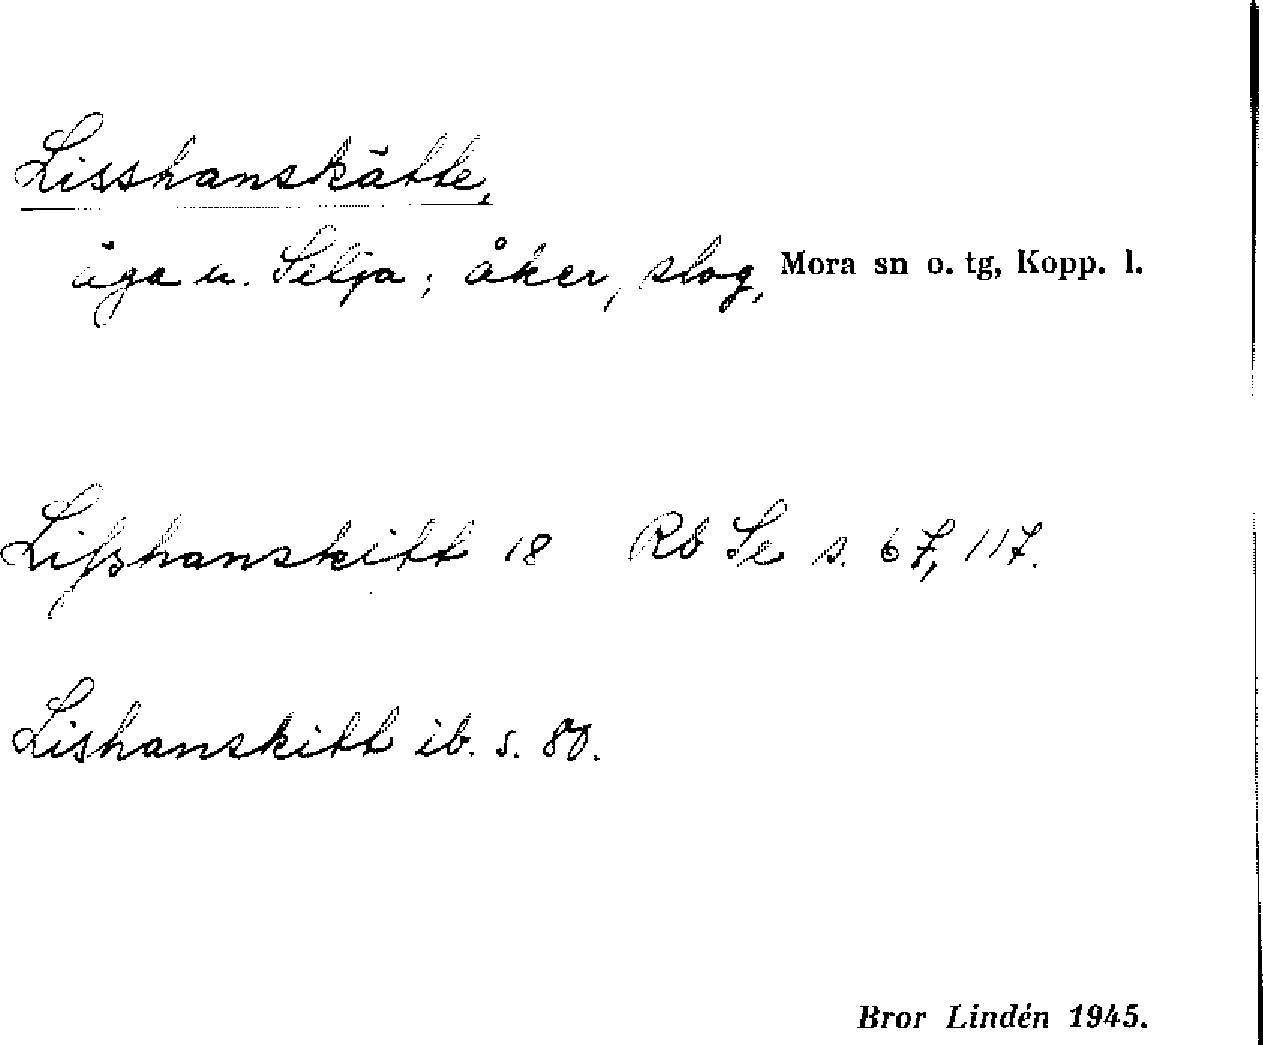 Lisshanskätte,
äga u. Selja; åker, slog, Mora sn o. tg, Kopp. l.
Lifshanskitt 18 Rb Se s. 67, 117.
Lishanskitt ib. s. 80.
Bror Lindén 1945.